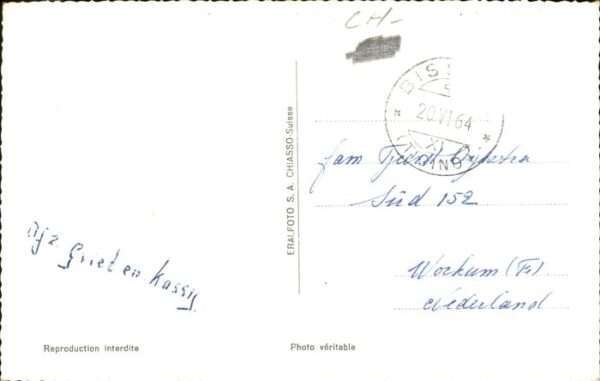 CH-
BIS
20.VI.64
XI
ERALFOTO S. A. CHIASSO-Suisse
Fam
Süd 152
Workum (Fr.)
Nederland
Afz.
Griet en
Reproduction interdite
Photo véritable